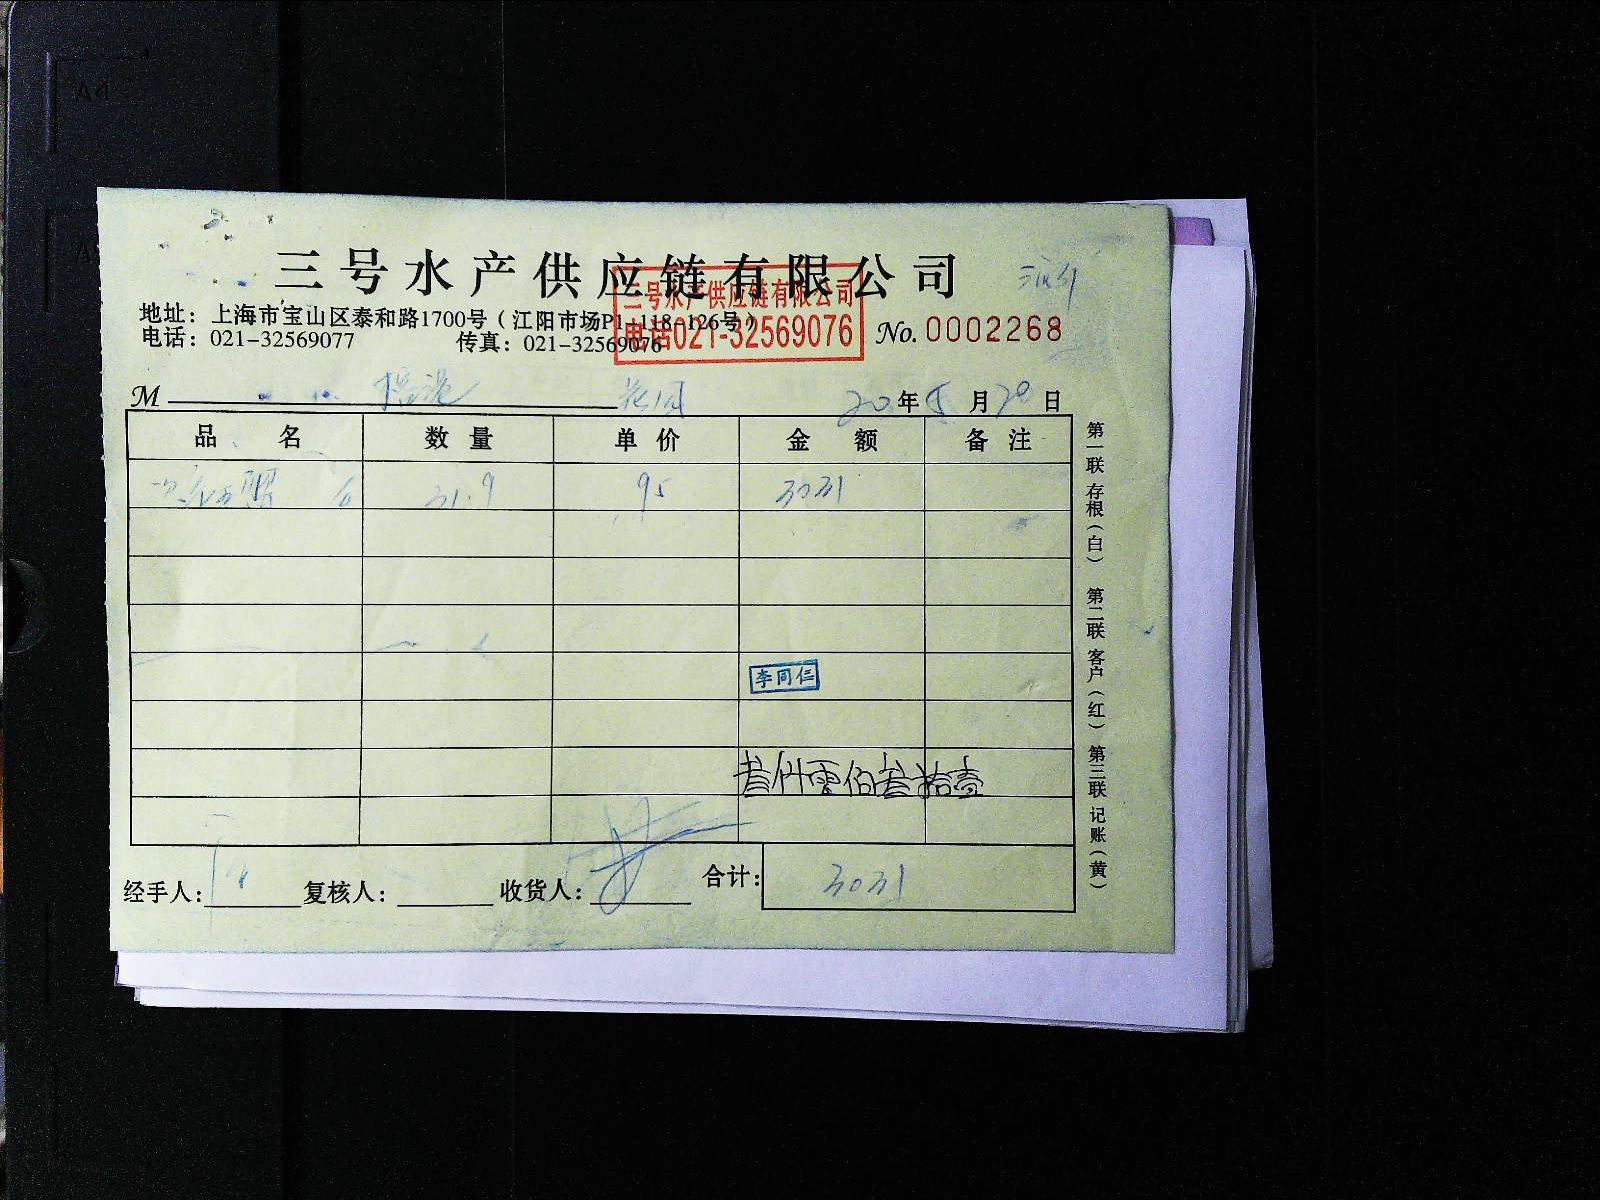 三号水产供应链有限公司
三号水产供应链有限公司
电话021-32569076
地址：上海市宝山区泰和路1700号（江阳市场P1-118-126号）
电话：021-32569077 传真：021-32569076
No. 0002268
M
20年5月29日
品名 数量 单价 金额 备注
31.9 95 3031
李同仁
叁仟零佰叁拾壹
经手人： 复核人： 收货人： 合计： 3031
第一联 存根（白） 第二联 客户（红） 第三联 记账（黄）
A4